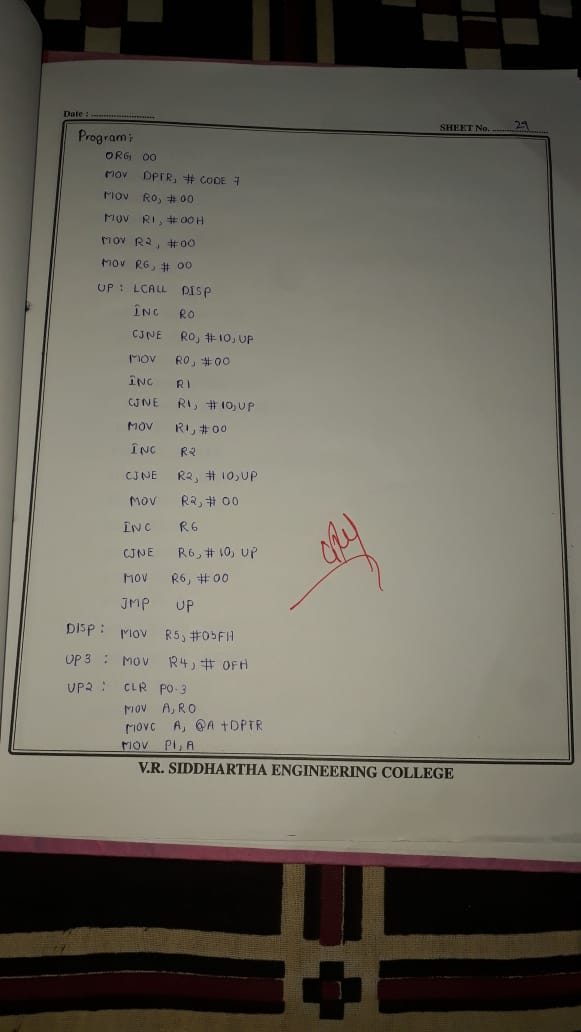 Date : ........................
SHEET No. ........29........
Program:
ORG 00
MOV DPTR, # CODE 7
MOV R0, #00
MOV R1, #00H
MOV R2, #00
MOV R6, # 00
UP : LCALL DISP
INC R0
CJNE R0, #10, UP
MOV R0, #00
INC R1
CJNE R1, #10, UP
MOV R1, #00
INC R2
CJNE R2, #10, UP
MOV R2, #00
INC R6
CJNE R6, #10, UP
MOV R6, #00
JMP UP
DISP : MOV R5, #05FH
UP3 : MOV R4, # 0FH
UP2 : CLR P0.3
MOV A, R0
MOVC A, @A +DPTR
MOV P1, A
V.R. SIDDHARTHA ENGINEERING COLLEGE